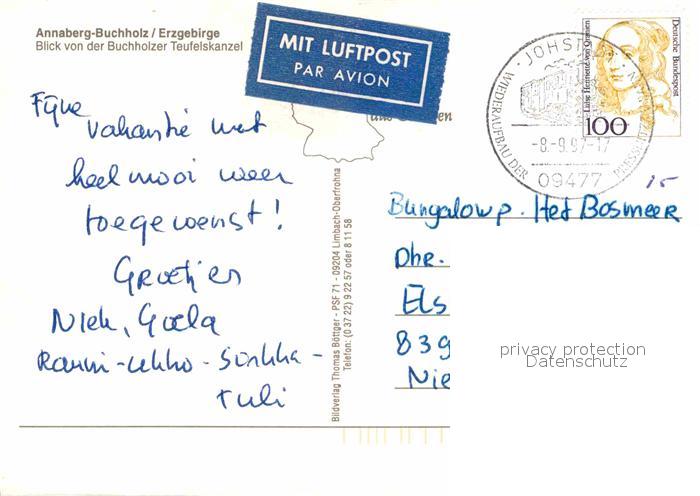 Annaberg-Buchholz / Erzgebirge
Blick von der Buchholzer Teufelskanzel
MIT LUFTPOST
PAR AVION
Fijne
vakantie met
heel mooi weer
toegewenst!
Groetjes
Niek, Goela
- Sinkka -
Tuli
Bildverlag Thomas Böttger - PSF 71 - 09204 Limbach-Oberfrohna
Telefon: (0 37 22) 9 22 57 oder 8 11 58
WIEDERAUFBAU DER
-8.-9.97-17
09477
Deutsche Bundespost
Luise Henriette von Oranien
100
15
Bungalowp. Het Bosmeer
Dhr.
Els
839
Nie
privacy protection
Datenschutz